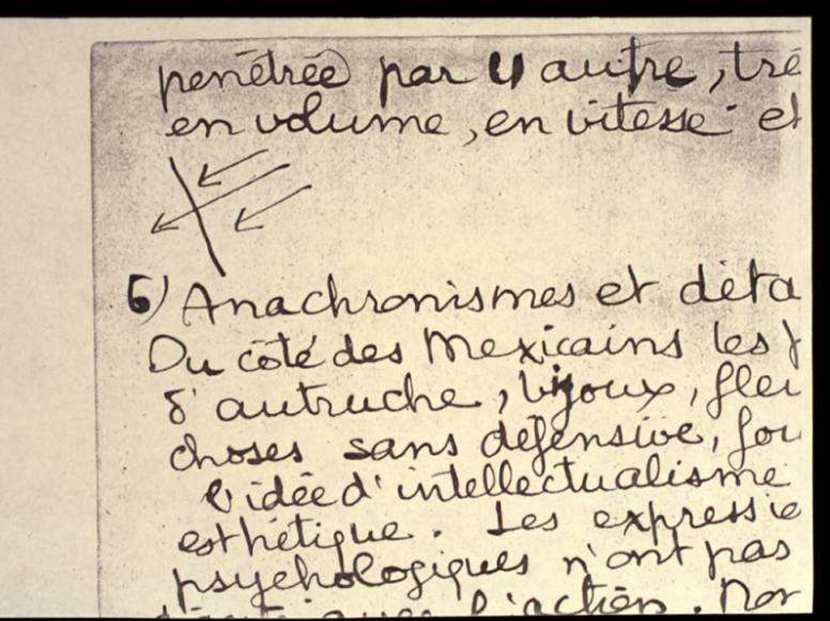 penétrée par l'autre, tré
en volume, en vitesse et
6) Anachronismes et déta
Du côté des Mexicains les
d'autruche, bijoux, fleu
choses sans défensive, fou
l'idée d'intellectualisme
esthétique. Les expressio
psychologiques n'ont pas
l'action. Nor